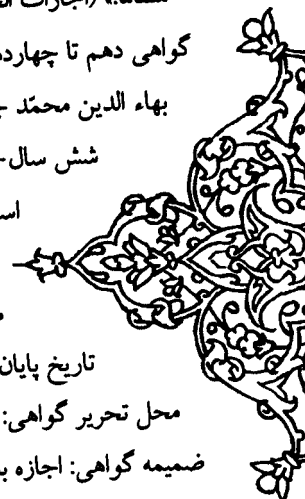 گواهی دهم تا چهارده
بهاء الدین محمّد
شش سال-
تاریخ پایان
محل تحریر گواهی:
ضمیمه گواهی: اجازه